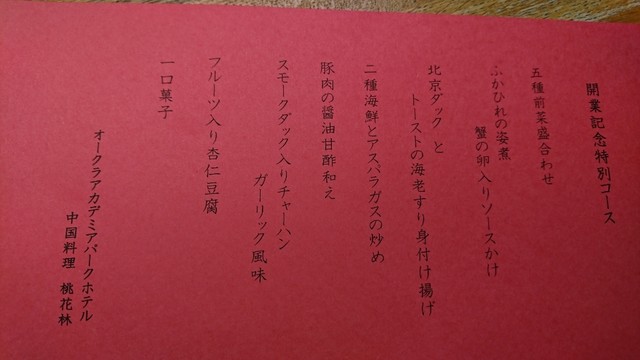 開業記念特別コース
五種前菜盛合わせ
ふかひれの姿煮
蟹の卵入りソースかけ
北京ダック と
トーストの海老すり身付け揚げ
二種海鮮とアスパラガスの炒め
豚肉の醤油甘酢和え
スモークダック入りチャーハン
ガーリック風味
フルーツ入り杏仁豆腐
一口菓子
オークラアカデミアパークホテル
中国料理 桃花林